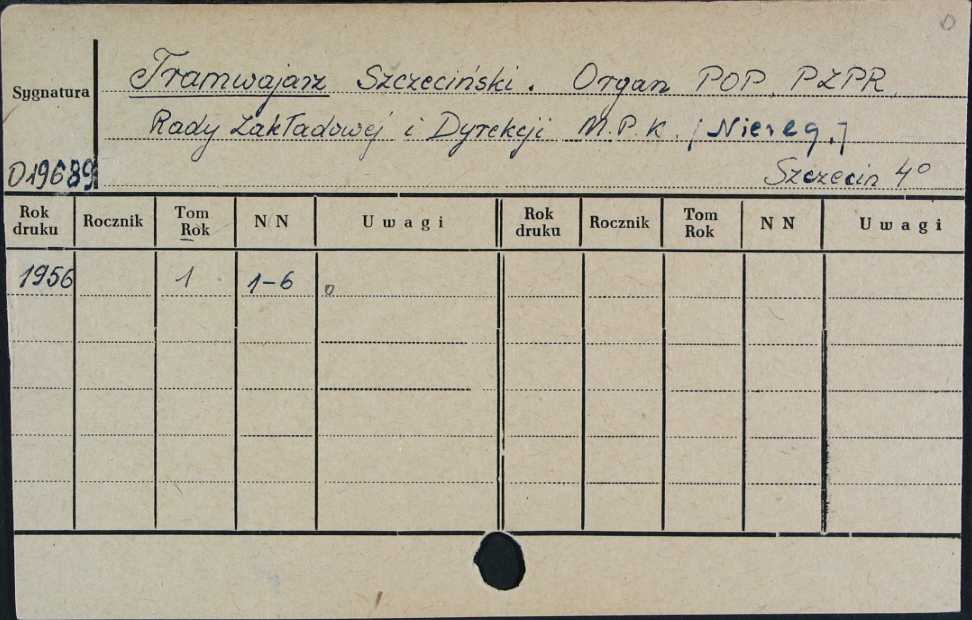 D
Sygnatura
Tramwajarz Szczeciński. Organ POP. PZPR,
Rady Zakładowej i Dyrekcji M.P.K. [Niereg.]
D19689
Szczecin 4°
Rok druku Rocznik Tom Rok N N U w a g i Rok druku Rocznik Tom Rok N N U w a g i
1956 1 1-6 o